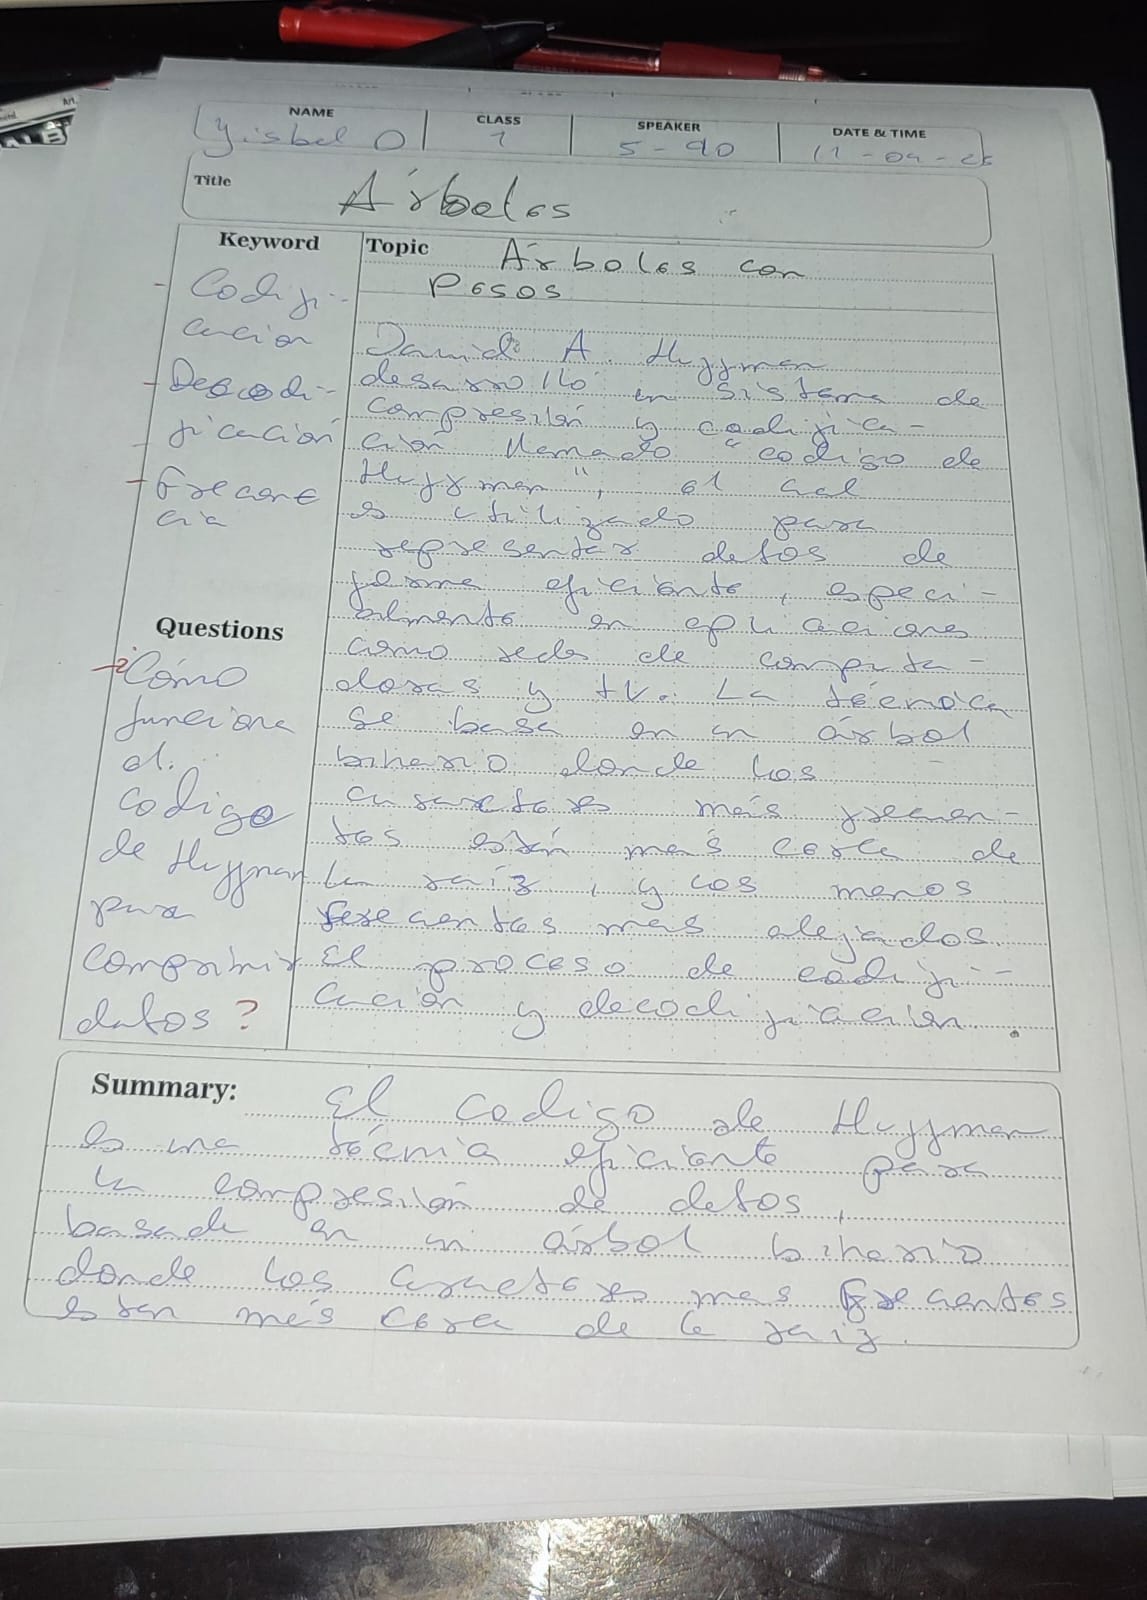 NAME CLASS SPEAKER DATE & TIME
Yisbel O 1 5-90 11-04-25
Title
Árboles
Keyword
- Codifi-
cación
- Decodi-
ficación
- Frecuen
cia
Questions
¿Cómo
funciona
el
codigo
de Huffman
para
comprimir
datos?
Topic Árboles con
Pesos
David A. Huffman
desarrolló un sistema de
compresión y codifica-
ción llamado "codigo de
Huffman", el cual
es utilizado para
representar datos de
forma eficiente, especi-
almente en aplicaciones
como redes de computa-
doras y tv. La técnica
se basa en un árbol
binario donde los
caracteres más frecuen-
tes están más cerca de
la raíz, y los menos
frecuentes mas alejados.
El proceso de codifi-
cación y decodificación.
Summary: El codigo de Huffman
es una técnia eficiente para
la compresión de datos,
basada en un árbol binario
donde los caracteres mas frecuentes
estan más cerca de la raiz.